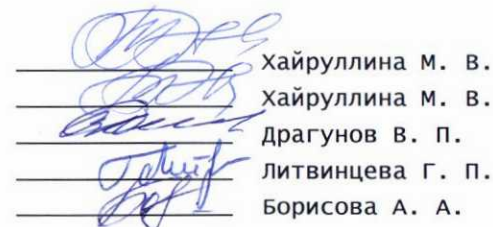 Хайруллина М. В.
Хайруллина М. В.
Драгунов В. П.
Литвинцева Г. П.
Борисова А. А.